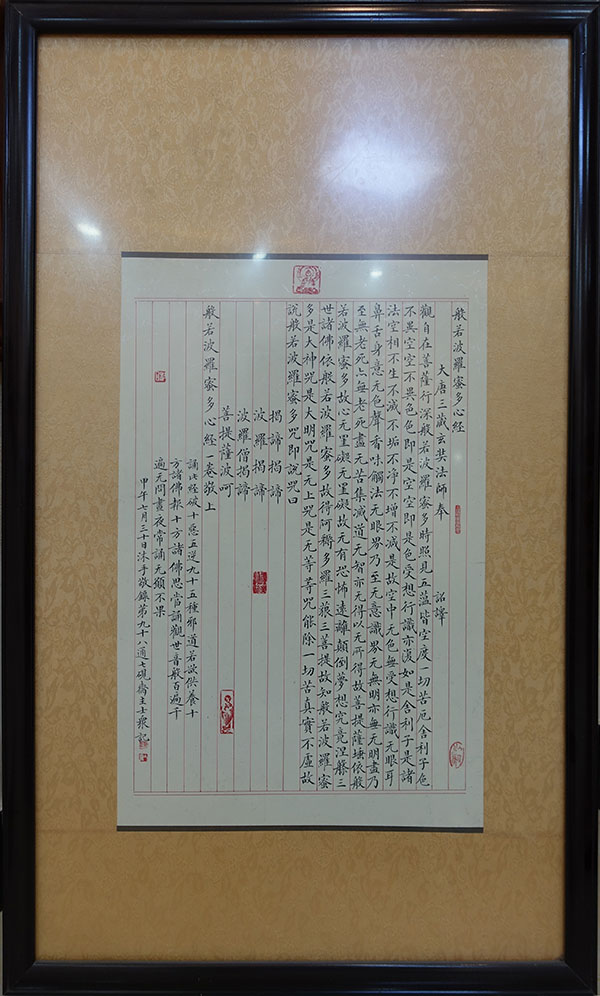 般若波羅蜜多心經
大唐三藏玄奘法師奉 詔譯
觀自在菩薩行深般若波羅蜜多時照見五蕰皆空度一切苦厄舍利子色
不異空空不異色色即是空空即是色受想行識亦復如是舍利子是諸
法空相不生不滅不垢不淨不增不減是故空中无色無受想行識无眼耳
鼻舌身意无色聲香味觸法无眼界乃至无意識界无無明亦無无明盡乃
至無老死亦無老死盡无苦集滅道无智亦无得以无所得故菩提薩埵依般
若波羅蜜多故心无罣礙无罣礙故无有恐怖遠離顛倒夢想究竟涅槃三
世諸佛依般若波羅蜜多故得阿耨多羅三藐三菩提故知般若波羅蜜
多是大神咒是大明咒是无上咒是无等等咒能除一切苦真實不虛故
說般若波羅蜜多咒即說咒曰
揭諦揭諦
波羅揭諦
波羅僧揭諦
菩提薩波呵
般若波羅蜜多心經一卷敬上
誦此經破十惡五逆九十五種邪道若欲供養十
方諸佛報十方諸佛恩當誦觀世音般百遍千
遍无問晝夜常誦无願不果
甲午七月三十日沐手敬錄第九十八通七硯齋主士衆記